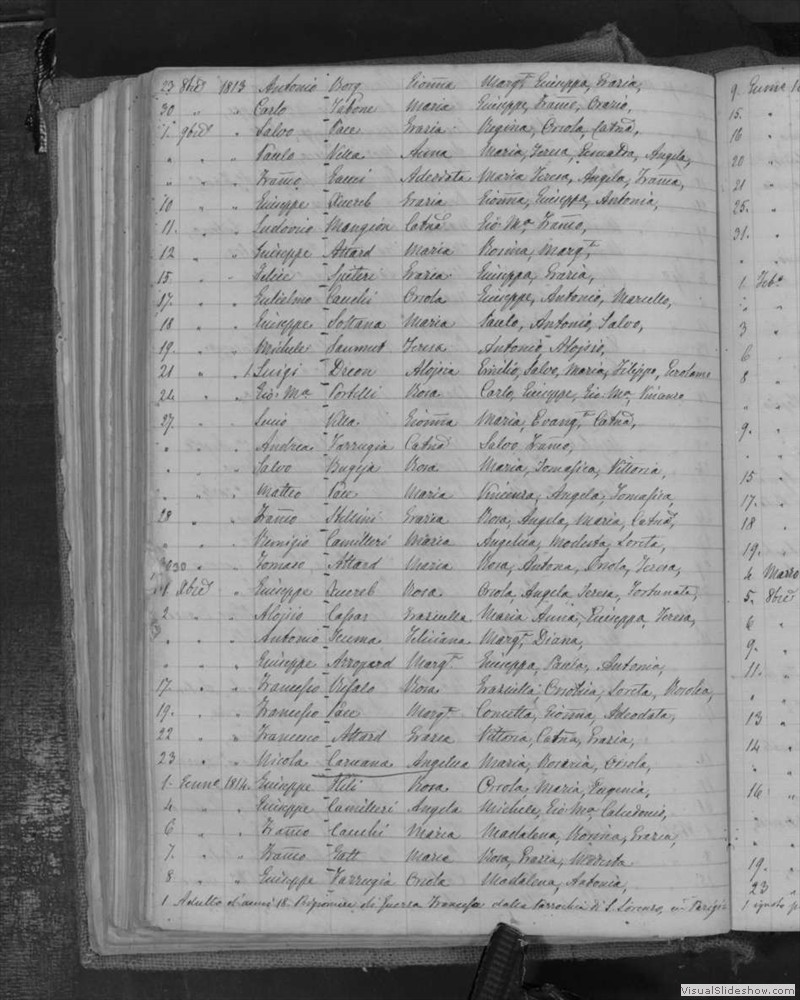 23 8bre 1813 Antonio Borg Gionna Margt Giuseppa, Grazia,
30 " " Carlo Maria Giuseppe, Franco, Orazio,
1. 9bre " Salvo Pace Grazia Regina, Orsola, Catna,
" " " Paulo Villa Anna Maria, Teresa, Angela,
" " " Franco Cauci Adeodata Maria Teresa, Angela, Franca,
10 " " Giuseppe Xuereb Grazia Gionna, Giuseppa, Antonia,
11. " " Ludovico Mangion Catna Gio Ma Franco,
12 " " Giuseppe Attard Maria Rosina, Margt,
15 " " Felice Spiteri Grazia Giuseppa, Grazia,
17. " " Gulielmo Cauchi Orsola Giuseppe, Antonio, Marcello,
18 " " Giuseppe Soltana Maria Paulo, Antonio, Salvo,
19. " " Michele Saumut Teresa Antonio Alojsio,
21 " " 1 Luigi Dreon Alojsia Emilio, Salvo, Maria, Filippo, Gerolamo
24 " " Gio: Ma Portelli Rosa Carlo, Giuseppe, Gio Ma, Vincenzo
27. " " Villa Gionna Maria, Evangta, Catna,
" " " Andrea Farrugia Catna Salvo Franco,
" " " Salvo Bugeja Rosa Maria, Tomasica, Vittoria,
" " " Matteo Pace Maria Vincenza, Angela, Tomasica,
28 " " Franco Stellini Grazia Rosa, Angela, Maria, Catna,
" " " Remigio Camilleri Maria Angelica, Modesta, Loreta,
30 " " Tomaso Attard Maria Rosa, Antona, Orsola, Teresa,
1. Xbre " Giuseppe Xuereb Rosa Orsola, Angela Teresa, Fortunata,
2 " " Alojsio Caspar Graziulla Maria Anna, Giuseppa, Teresa,
" " " Antonio Scuma Feliciana Margt, Diana,
" " " Giuseppe Arropard Margt Giuseppa, Paula, Antonia,
17. " " Francesco Bufalo Rosa Graziulla, Loreta, Rosolea,
19. " " Francesco Pace Margt Concetta, Gionna, Adeodata,
22 " " Francesco Attard Grazia Vittoria, Catna, Grazia,
23 " " Nicola Caruana Angelica Maria, Rosaria, Orsola,
1. Genno 1814. Giuseppe Hili Rosa Orsola, Maria, Eugenia,
4 " " Giuseppe Camilleri Angela Michele, Gio Ma, Calcedonio,
6 " " Franco Cauchi Maria Madalena, Rosina, Grazia,
7. " " Franco Gatt Maria Rosa, Grazia, Modesta
8 " " Giuseppe Farrugia Orsola Madalena, Antonia,
1 Adulto d'anni 18. Prigioniere di Guerra Francese dalla Parrochia di S. Lorenzo, in Parigi
9. Genno
15. "
16 "
20 "
21 "
25. "
31. "
" "
1. Feb.o
" "
3 "
6 "
8 "
" "
9. "
" "
15 "
17. "
18 "
19. "
4 Marzo
5. 8bre
6 "
9. "
11. "
" "
13 "
14 "
" "
16 "
" "
" "
19. "
23 "
1 ignoto
VisualSlideshow.com